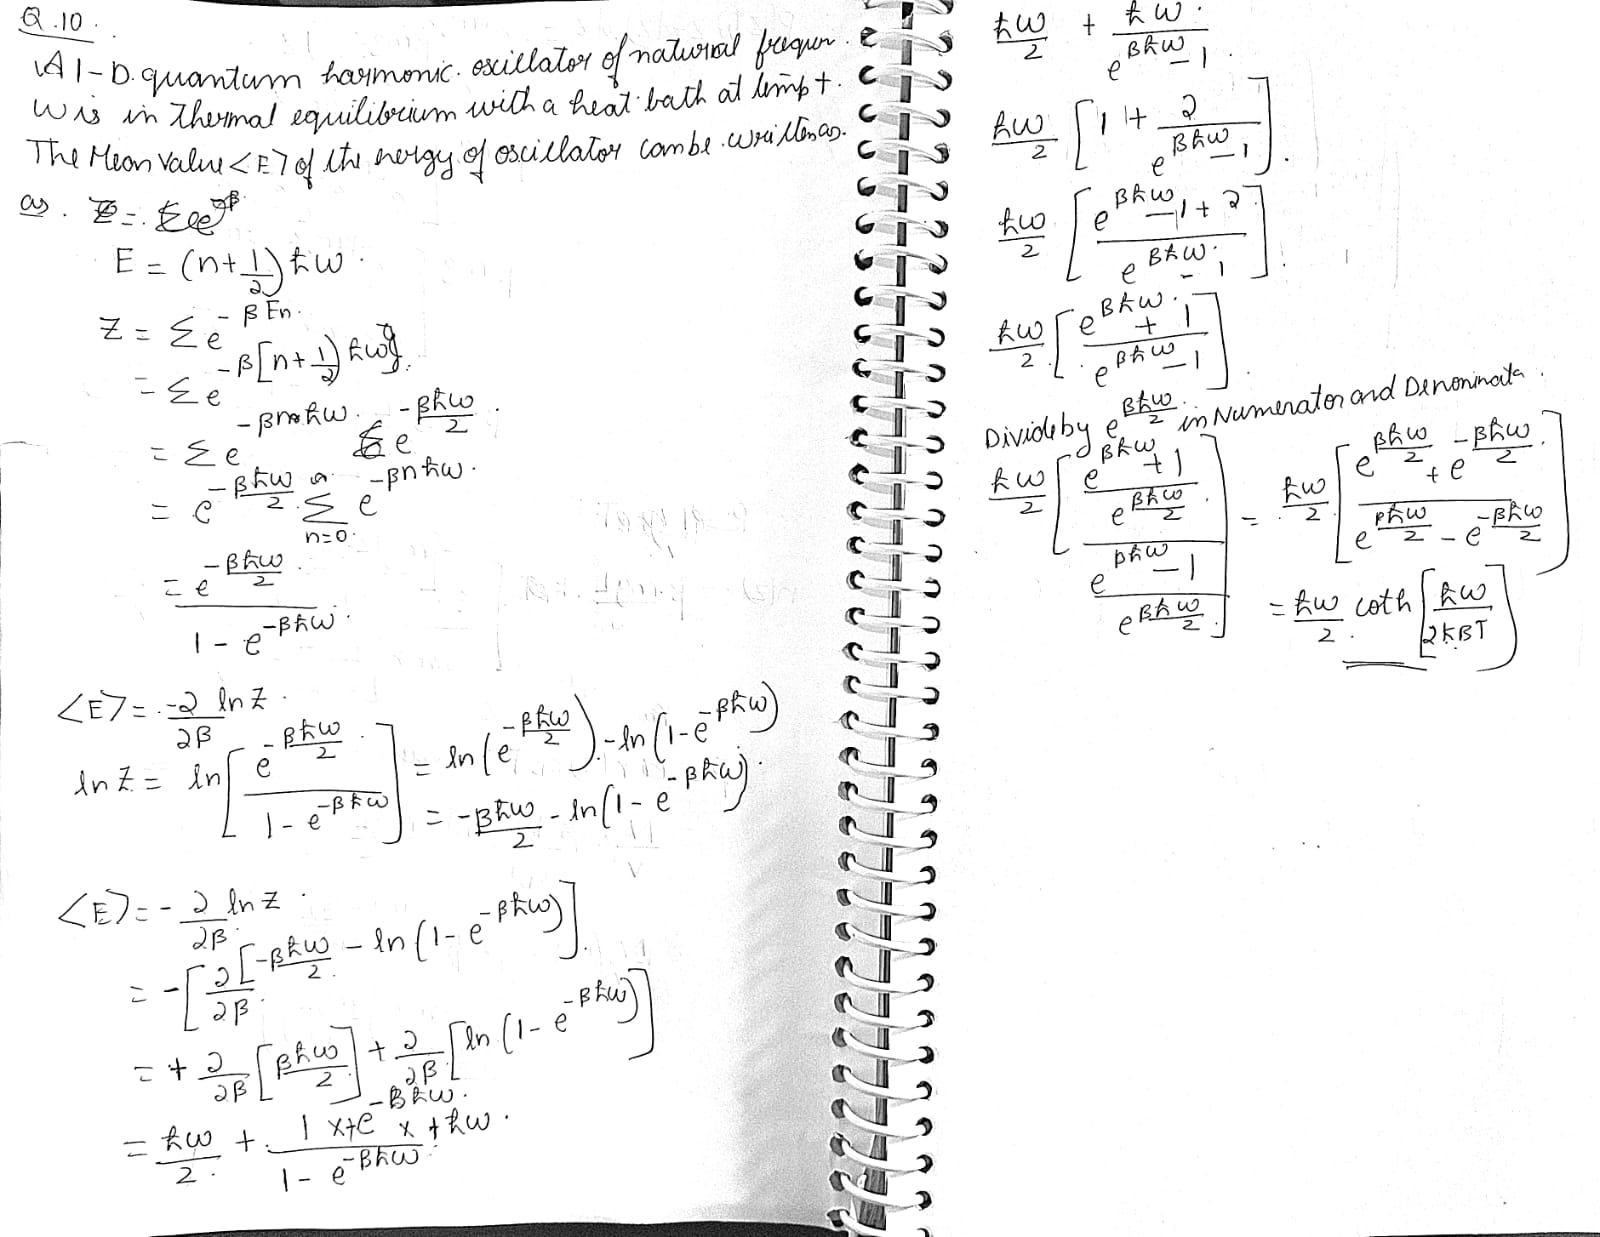 Q.10.
A 1-D. quantum harmonic. oscillator of natural frequen.
W is in thermal equilibrium with a heat bath at temp t.
The Mean value <E> of the nergy of oscillator can be written as.
as.
E = (n+1/2) ħω.
Z = Σe^{-βEn.}
= Σe^{-β[n+1/2)ħω}
= Σe^{-βnħω} . e^{-βħω/2}.
= e^{-βħω/2} . Σ_{n=0.} e^{-βnħω}.
= e^{-βħω/2} / 1 - e^{-βħω}.
<E> = -∂/∂β ln Z.
ln Z = ln [e^{-βħω/2} / 1 - e^{-βħω}] = ln(e^{-βħω/2}) - ln(1-e^{-βħω})
= -βħω/2 - ln(1 - e^{-βħω}).
<E> = -∂/∂β ln Z.
= -[∂/∂β [-βħω/2 - ln(1 - e^{-βħω})].
= +∂/∂β [βħω/2] + ∂/∂β [ln(1 - e^{-βħω})]
= ħω/2. + 1 x+e^{-βħω}. x +ħω. / 1 - e^{-βħω}.
ħω/2 + ħω. / e^{βħω} - 1.
ħω/2 [1 + 2 / e^{βħω} - 1].
ħω/2 [e^{βħω} - 1 + 2 / e^{βħω} - 1].
ħω/2 [e^{βħω} + 1 / e^{βħω} - 1].
Divide by e^{βħω/2} in Numerator and Denominata.
ħω/2 [e^{βħω} + 1 / e^{βħω/2} / e^{βħω} - 1 / e^{βħω/2}] = ħω/2 [e^{βħω/2} + e^{-βħω/2} / e^{βħω/2} - e^{-βħω/2}]
= ħω/2. coth [ħω / 2KBT]